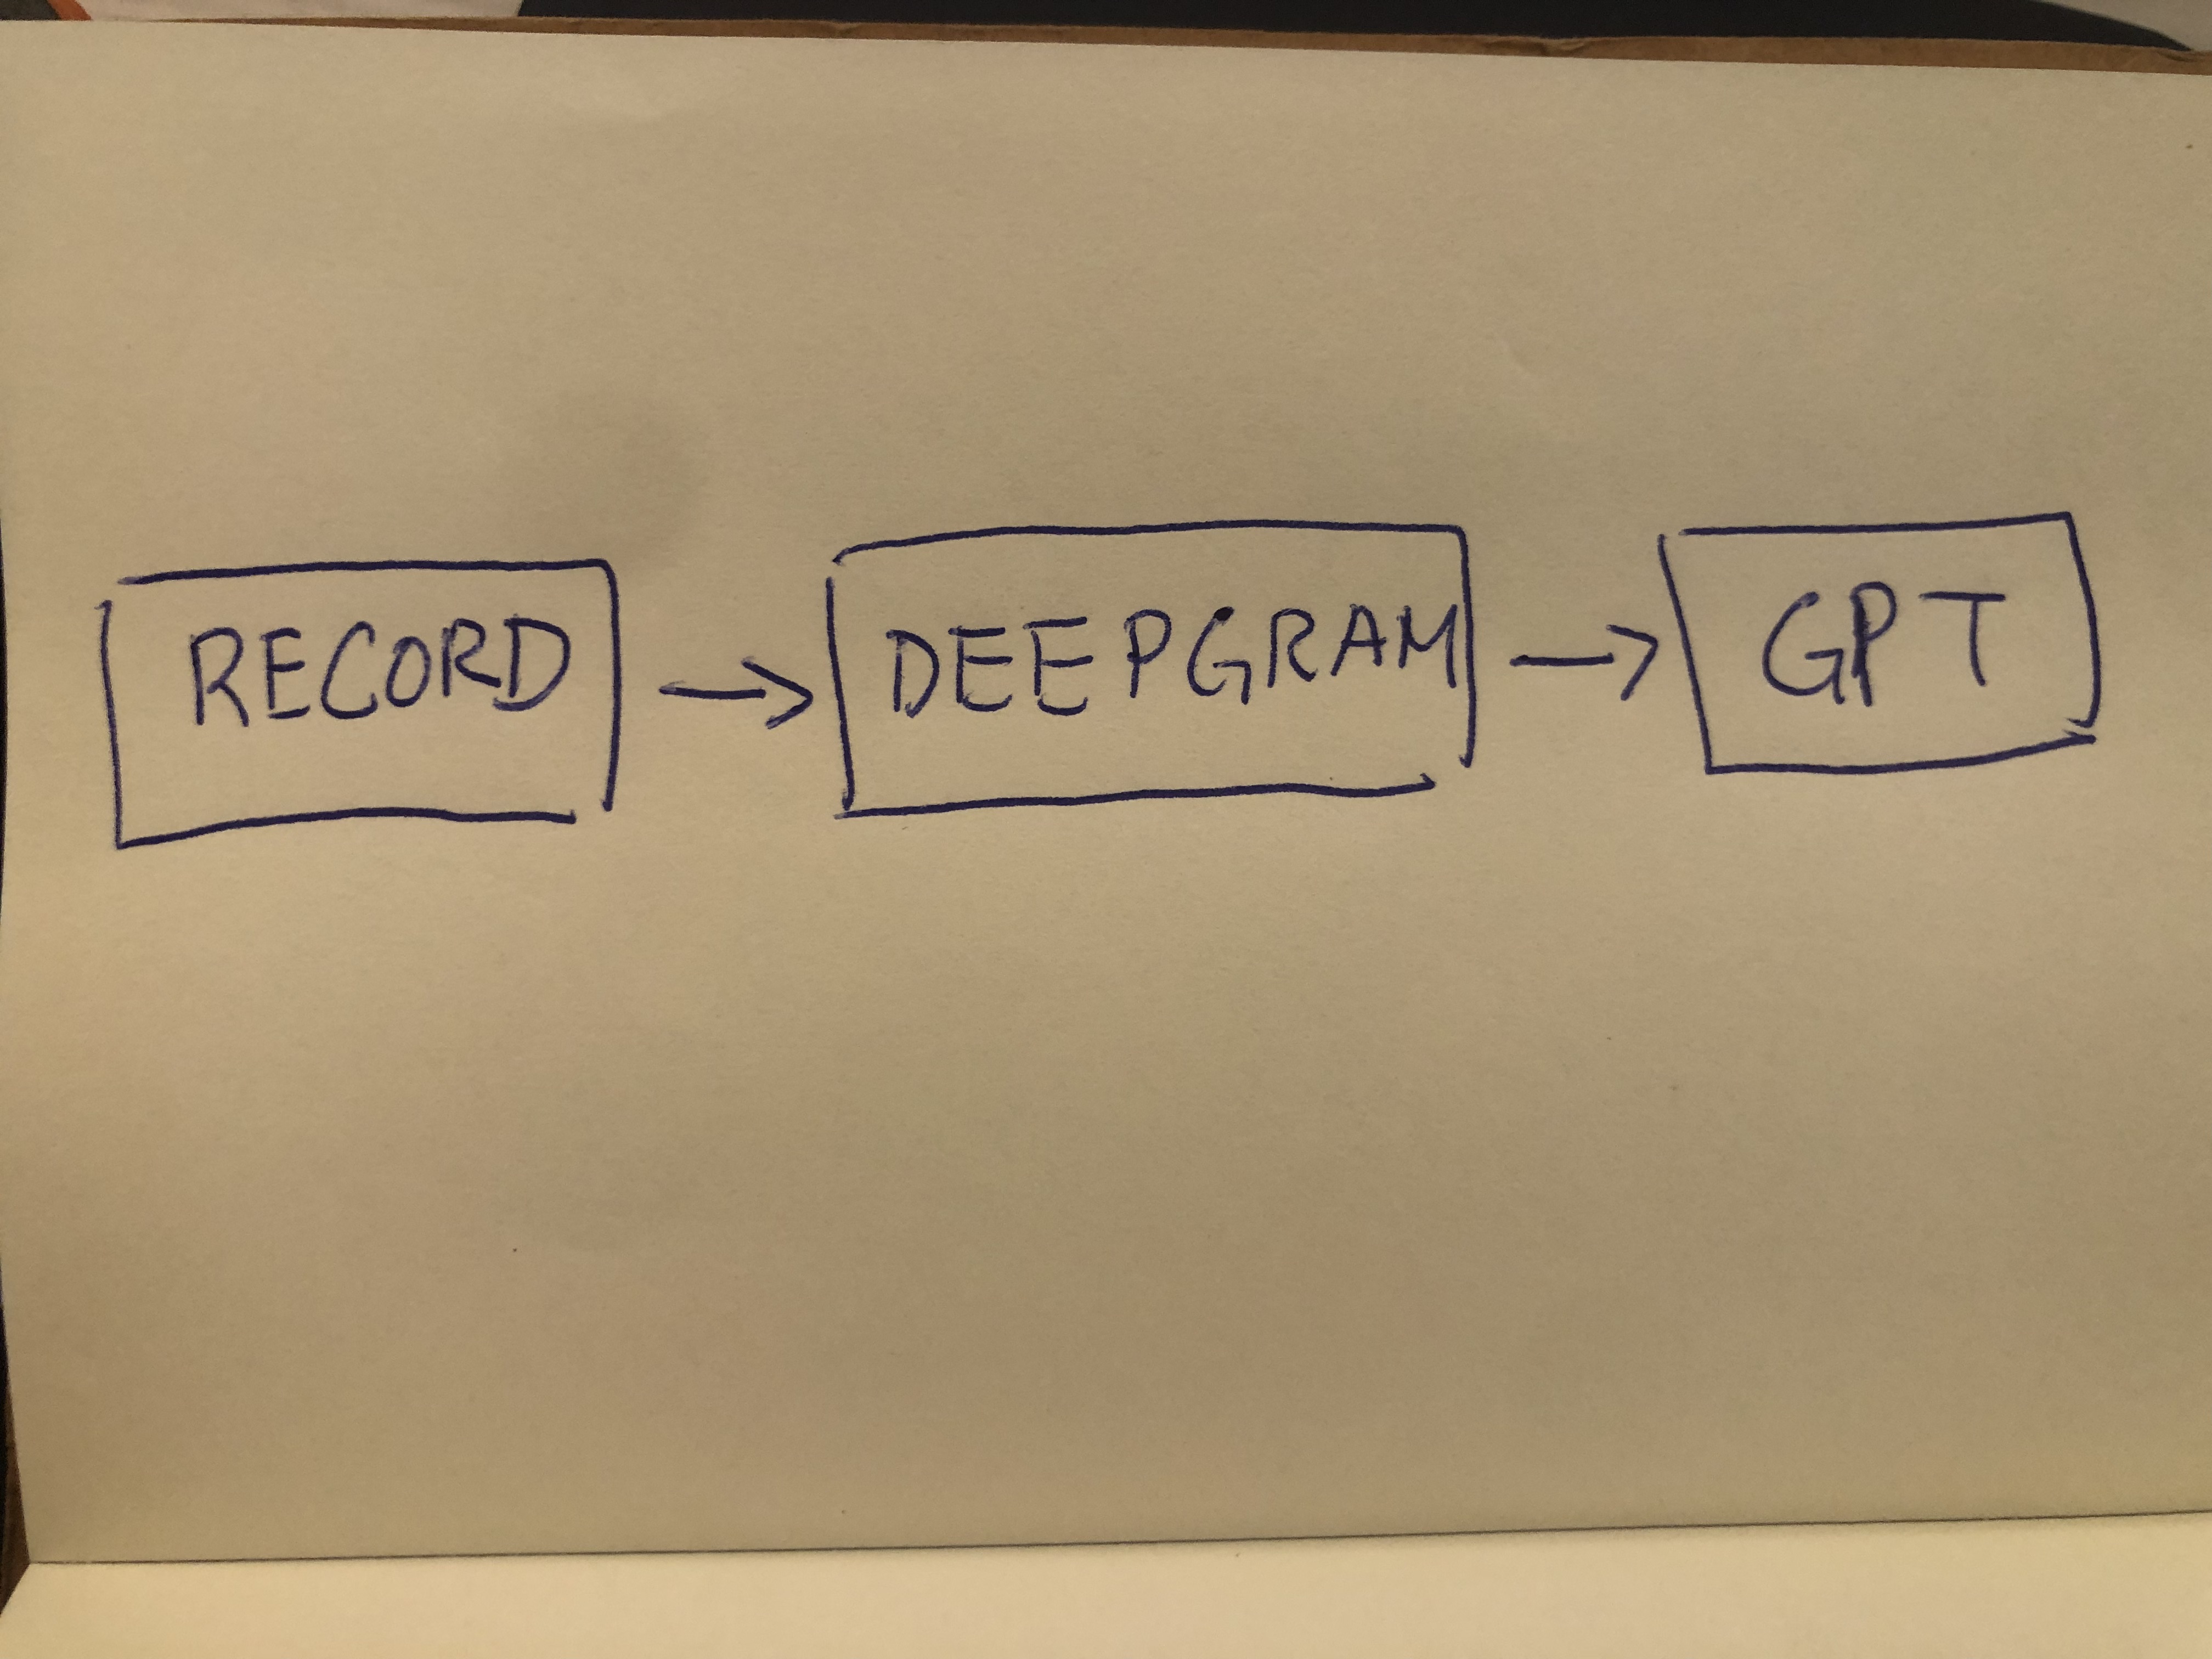 RECORD → DEEPGRAM → GPT